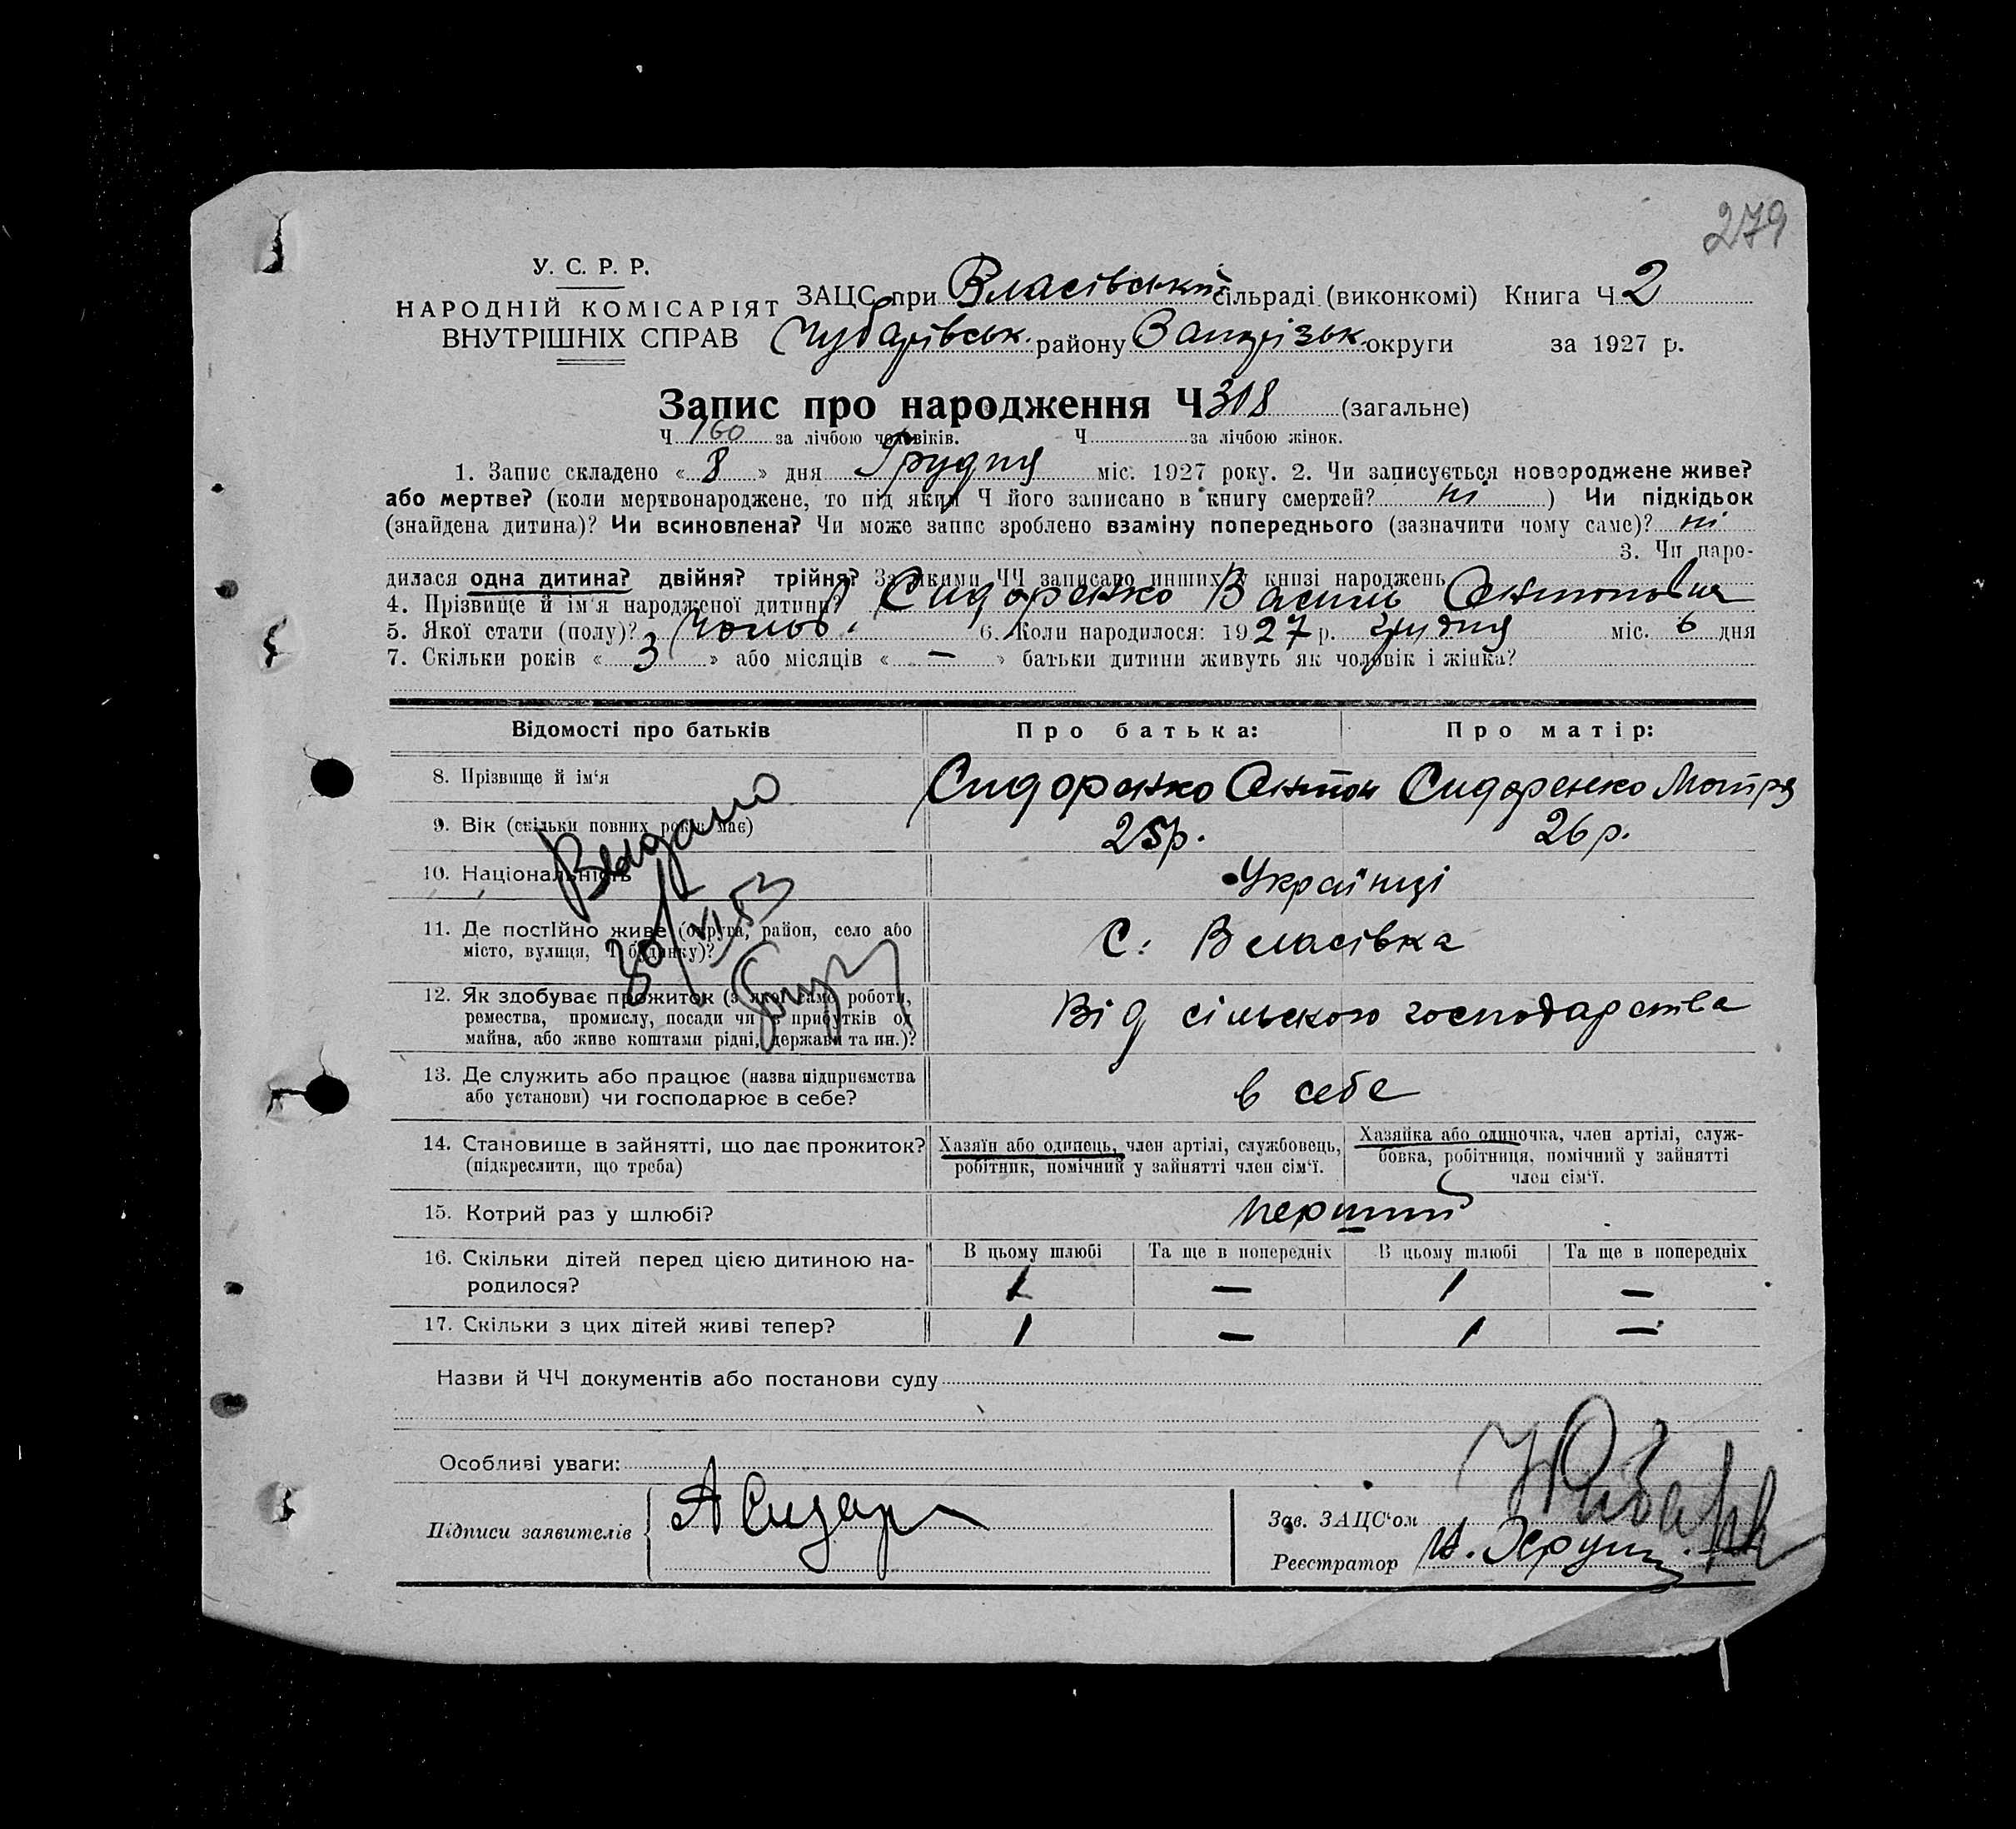 279
У. С. Р. Р.
НАРОДНІЙ КОМІСАРІЯТ
ВНУТРІШНІХ СПРАВ
ЗАЦС при Власівській сільраді (виконкомі) Книга Ч 2
Чубарівськ. району Запорізьк. округи за 1927 р.
Запис про народження Ч 318 (загальне)
Ч 160 за лічбою чоловіків. Ч за лічбою жінок.
1. Запис складено « 8 » дня Грудня міс. 1927 року. 2. Чи записується новороджене живе?
або мертве? (коли мертвонароджене, то під яким Ч його записано в книгу смертей? ні ) Чи підкідьок
(знайдена дитина)? Чи всиновлена? Чи може запис зроблено взаміну попереднього (зазначити чому саме)? ні
3. Чи наро-
дилася одна дитина? двійня? трійня? За якими ЧЧ записано инших у книзі народжень
4. Прізвище й ім'я народженої дитини? Сидоренко Василь Антонович
5. Якої стати (полу)? Чолов. 6. Коли народилося: 1927 р. грудня міс. 6 дня
7. Скільки років « 3 » або місяців « — » батьки дитини живуть як чоловік і жінка?
Відомості про батьків Про батька: Про матір:
8. Прізвище й ім'я Сидоренко Антон Сидоренко Мотря
9. Вік (скільки повних років має) 25р. 26р.
10. Національність Українці
11. Де постійно живе (округа, район, село або
місто, вулиця, Ч будинку)? С. Власівка
12. Як здобуває прожиток (з якої саме роботи,
ремества, промислу, посади чи з прибутків од
майна, або живе коштами рідні, держави та ин.)? Від сільского господарства
13. Де служить або працює (назва підприємства
або установи) чи господарює в себе? в себе
14. Становище в зайнятті, що дає прожиток?
(підкреслити, що треба)
Хазяїн або одинець, член артілі, службовець,
робітник, помічний у зайнятті член сім'ї.
Хазяйка або одиночка, член артілі, служ-
бовка, робітниця, помічний у зайнятті
член сім'ї.
15. Котрий раз у шлюбі? перший
16. Скільки дітей перед цією дитиною на-
родилося?
В цьому шлюбі Та ще в попередніх В цьому шлюбі Та ще в попередніх
1 — 1 —
17. Скільки з цих дітей живі тепер? 1 — 1 —
Видано
30/XI 53
Назви й ЧЧ документів або постанови суду
Особливі уваги:
Підписи заявителів А Сидор
Зав. ЗАЦС'ом
Реєстратор